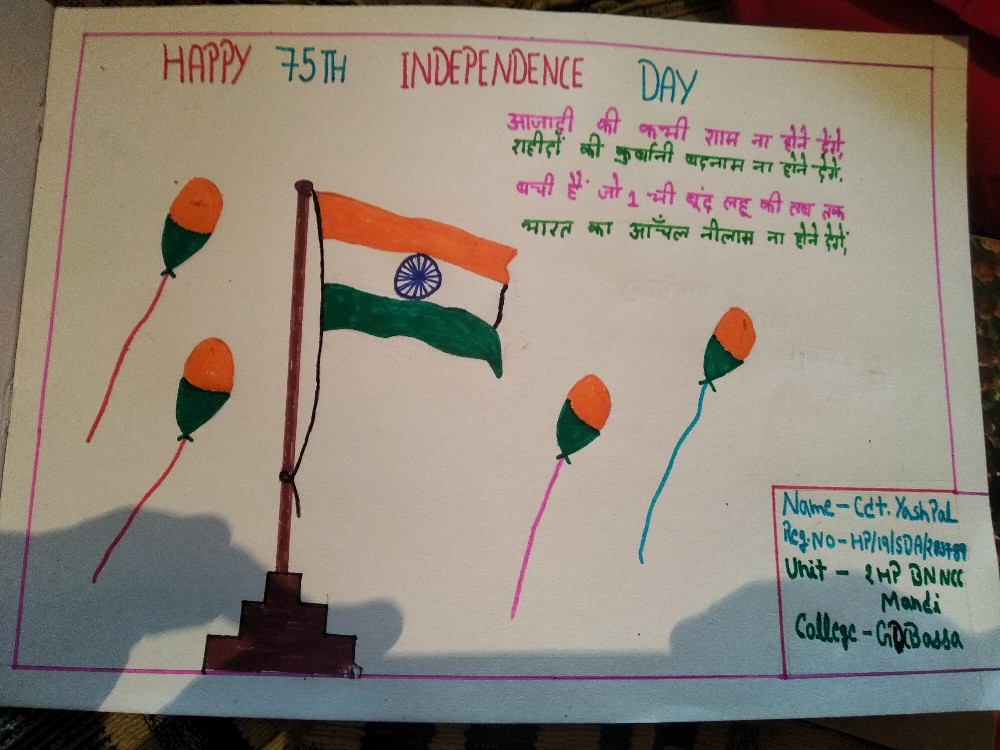 HAPPY 75TH INDEPENDENCE DAY
आजादी की कभी शाम ना होने देंगे,
शहीदों की कुर्बानी बदनाम ना होने देगें.
बची हैं जो 1 भी बूंद लहू की तब तक
भारत का आँचल नीलाम ना होने देगें,
Name - Cdt. Yash Pal
Reg. No - HP/19/SDA/
Unit - 2 HP BN NCC
Mandi
College - GDC Bassa